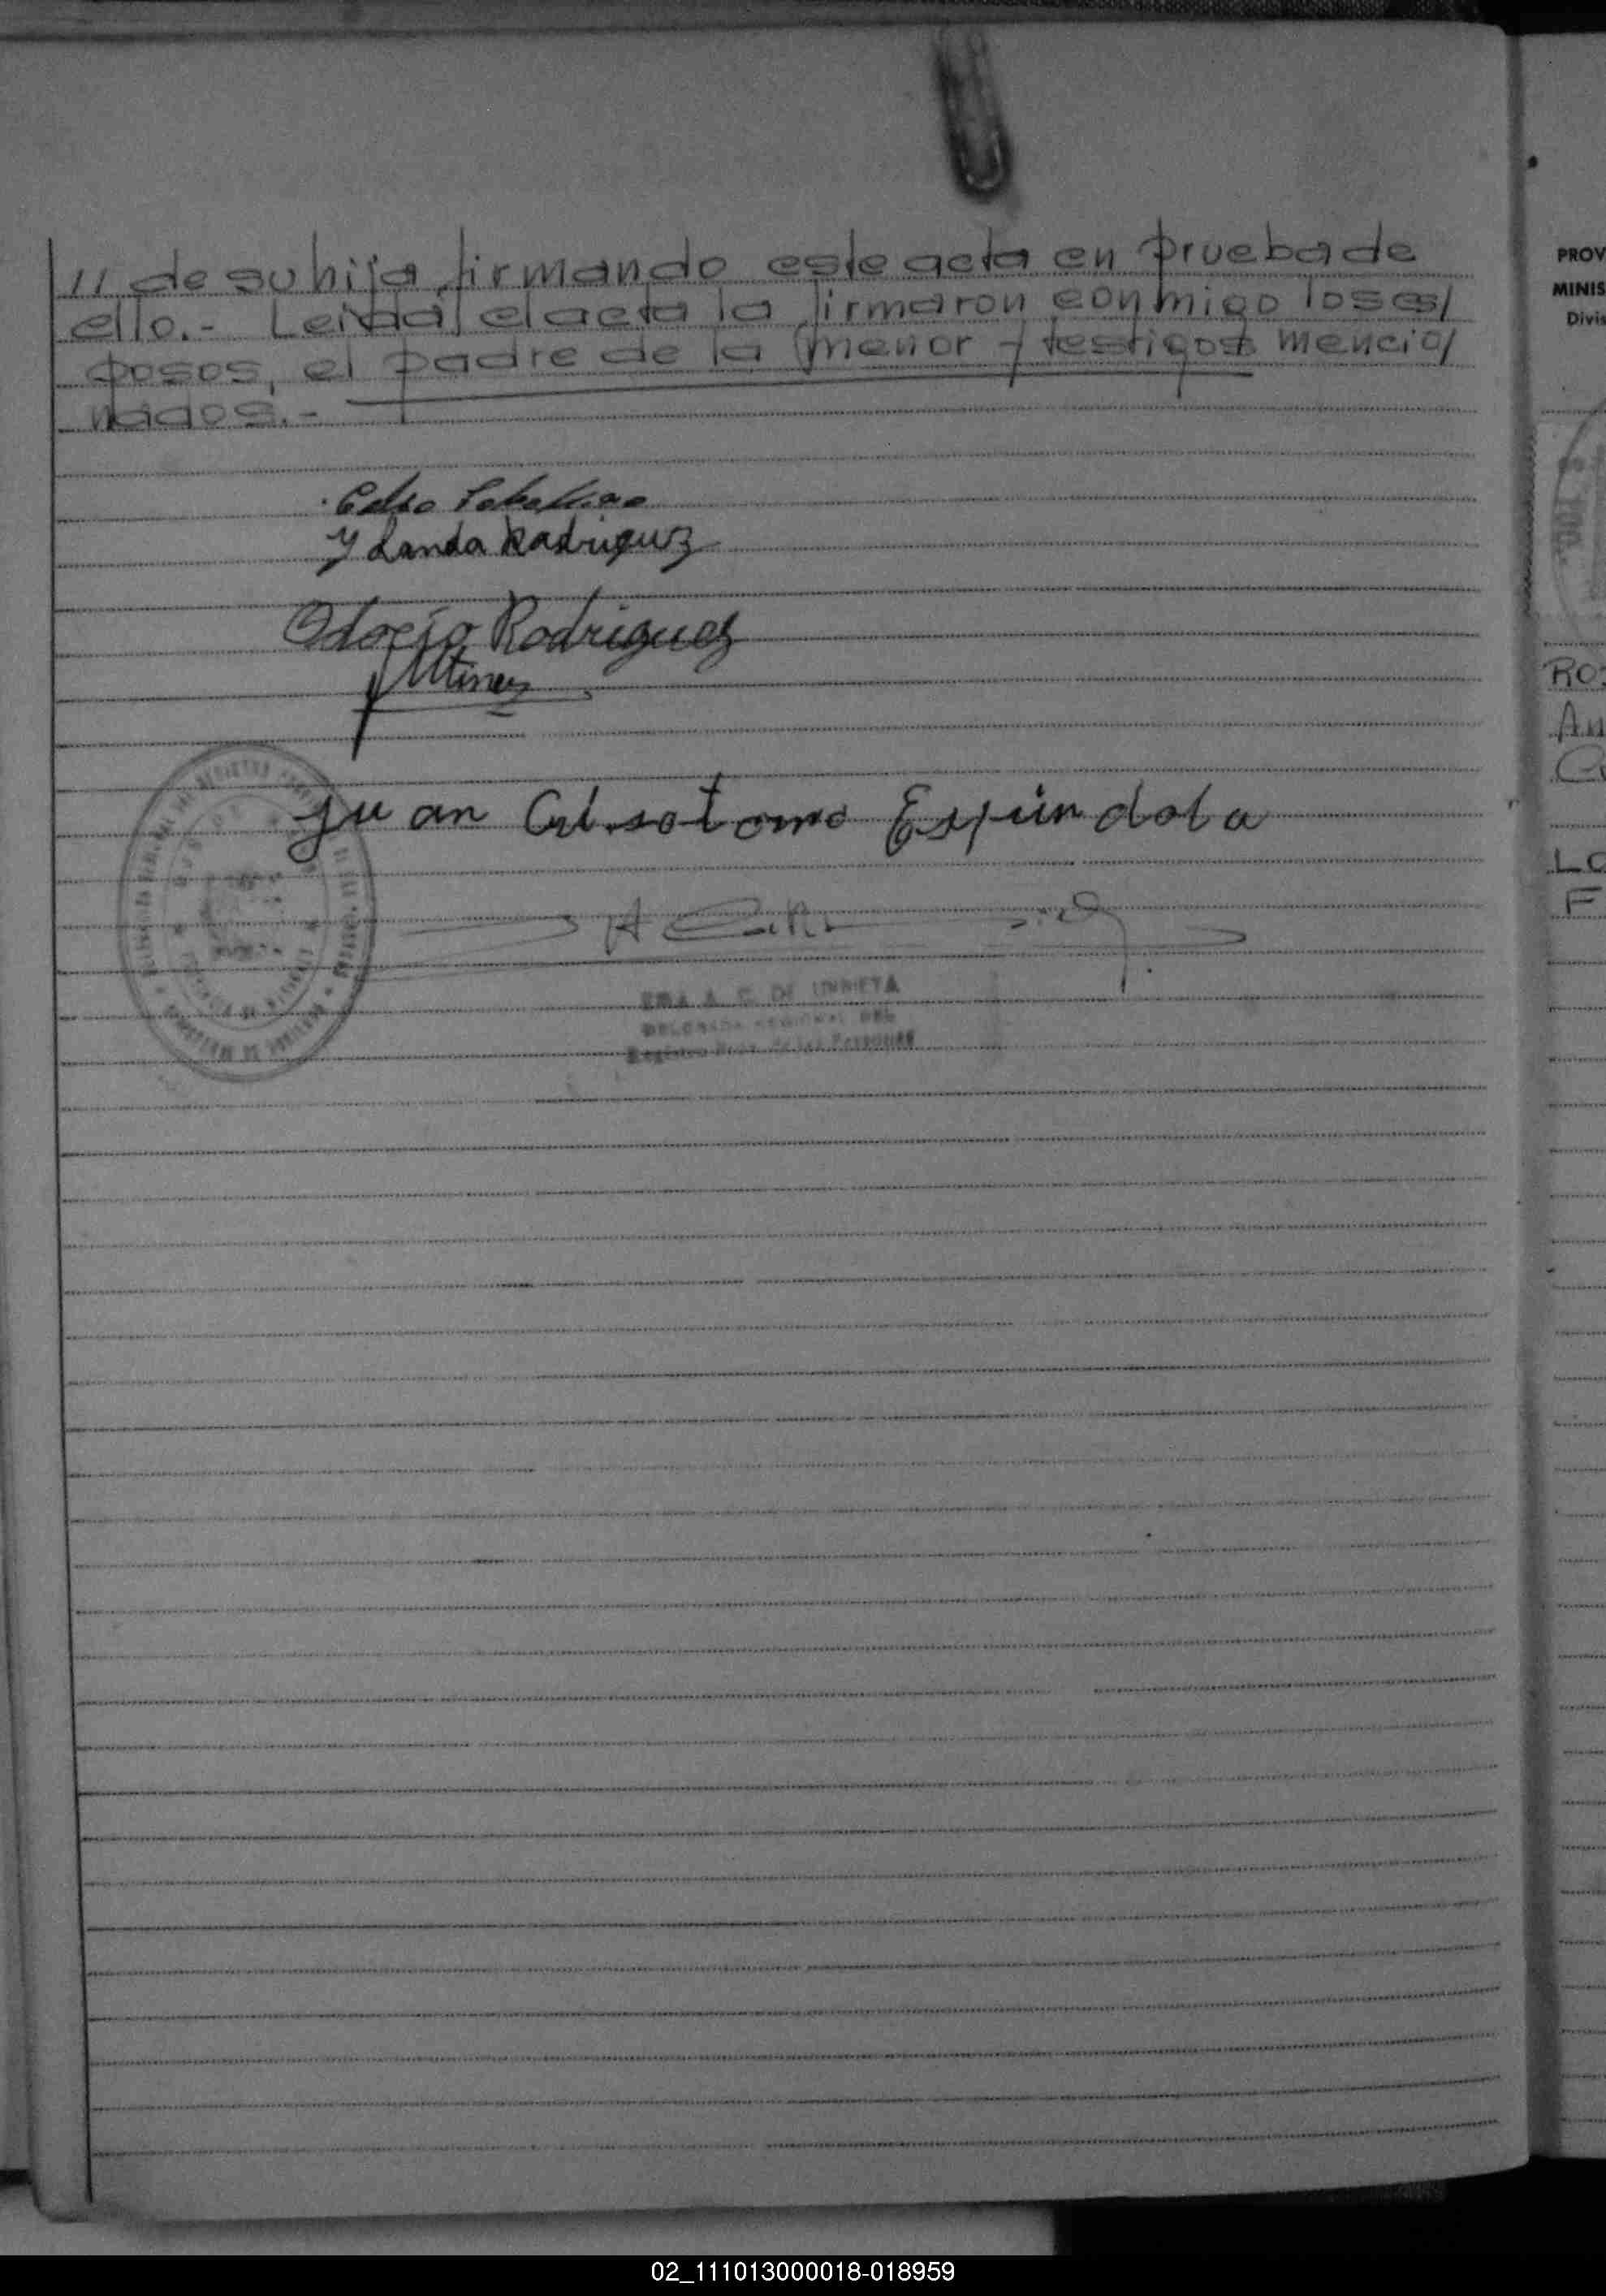 // de su hija, firmando este acta en prueba de
ello.- Leida el acta la firmaron conmigo los es/
posos, el padre de la menor y testigos mencio/
nados.-
Celso
Yolanda Rodriguez
Rodriguez
Juan Espindola
DE URRIETA
DELEGADA REGIONAL DEL
Registro de las Personas
PROV
MINIS
Divis
RO
An
LO
F
02_111013000018-018959